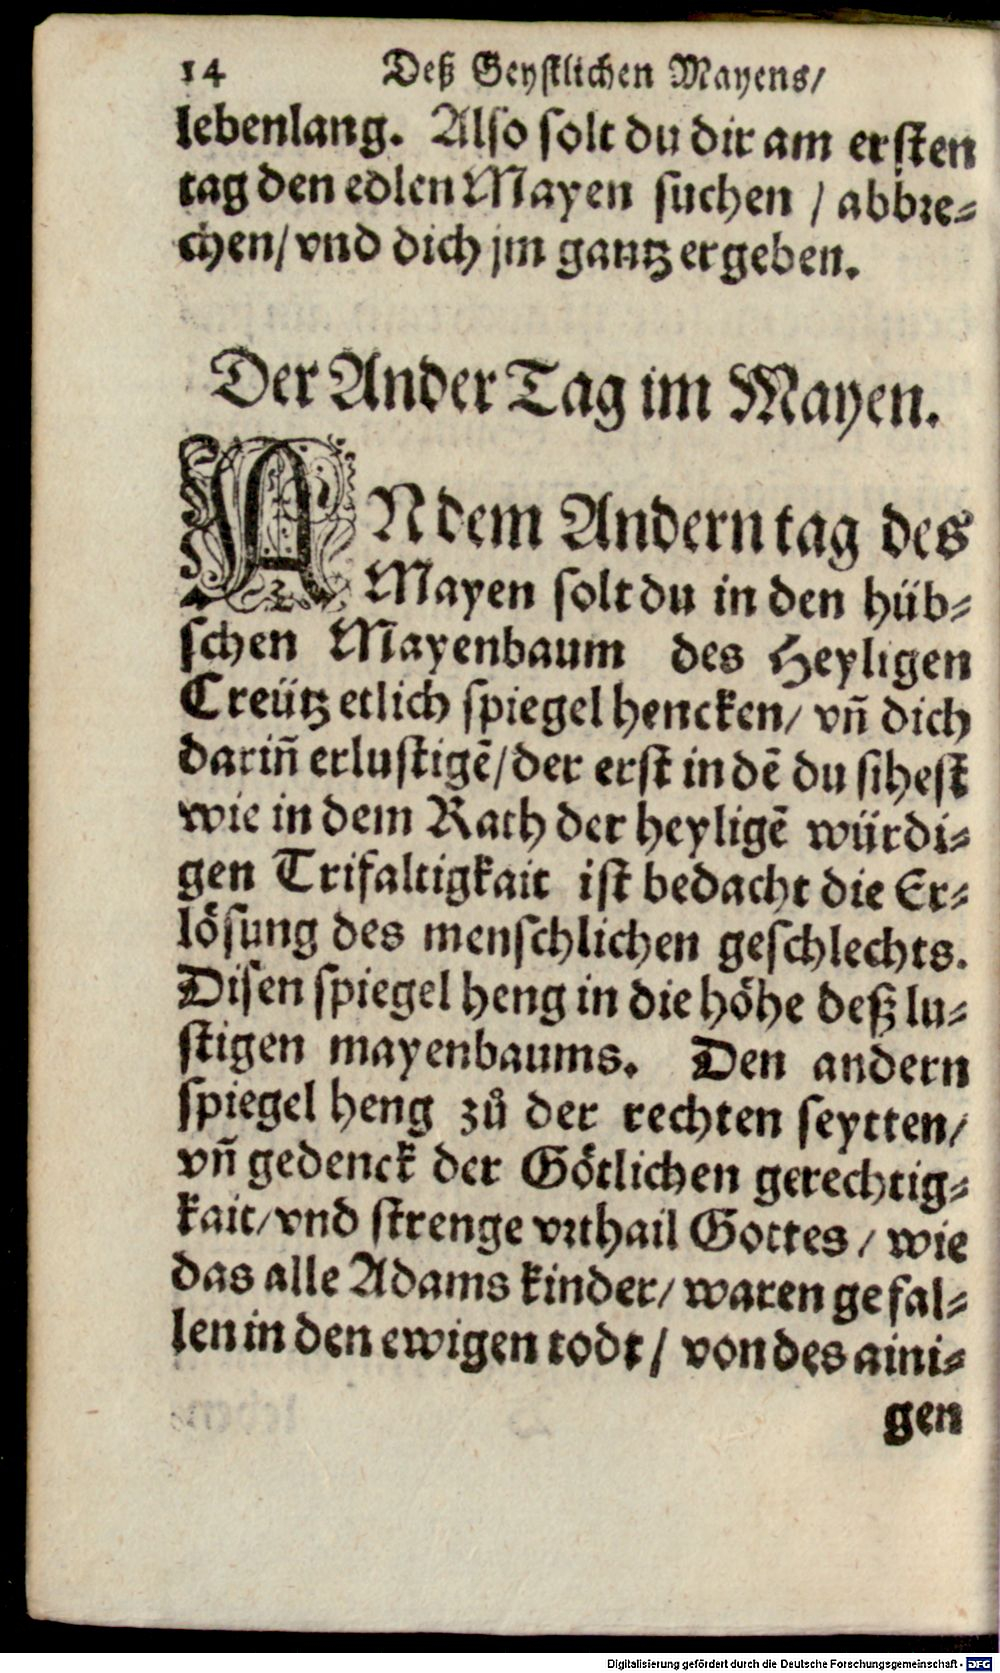 14 Deß Geystlichen Mayens/
lebenlang. Also solt du dir am ersten
tag den edlen Mayen suchen / abbre-
chen/ vnd dich jm gantz ergeben.
Der Ander Tag im Mayen.
AN dem Andern tag des
Mayen solt du in den hüb-
schen Mayenbaum des Heyligen
Creütz etlich spiegel hencken/ vñ dich
dariñ erlustigē/ der erst in dē du sihest
wie in dem Rath der heyligē würdi-
gen Trifaltigkait ist bedacht die Er-
lösung des menschlichen geschlechts.
Disen spiegel heng in die höhe deß lu-
stigen mayenbaums. Den andern
spiegel heng zů der rechten seytten/
vñ gedenck der Götlichen gerechtig-
kait/ vnd strenge vrthail Gottes / wie
das alle Adams kinder/ waren gefal-
len in den ewigen todt / von des aini-
gen
Digitalisierung gefördert durch die Deutsche Forschungsgemeinschaft - DFG